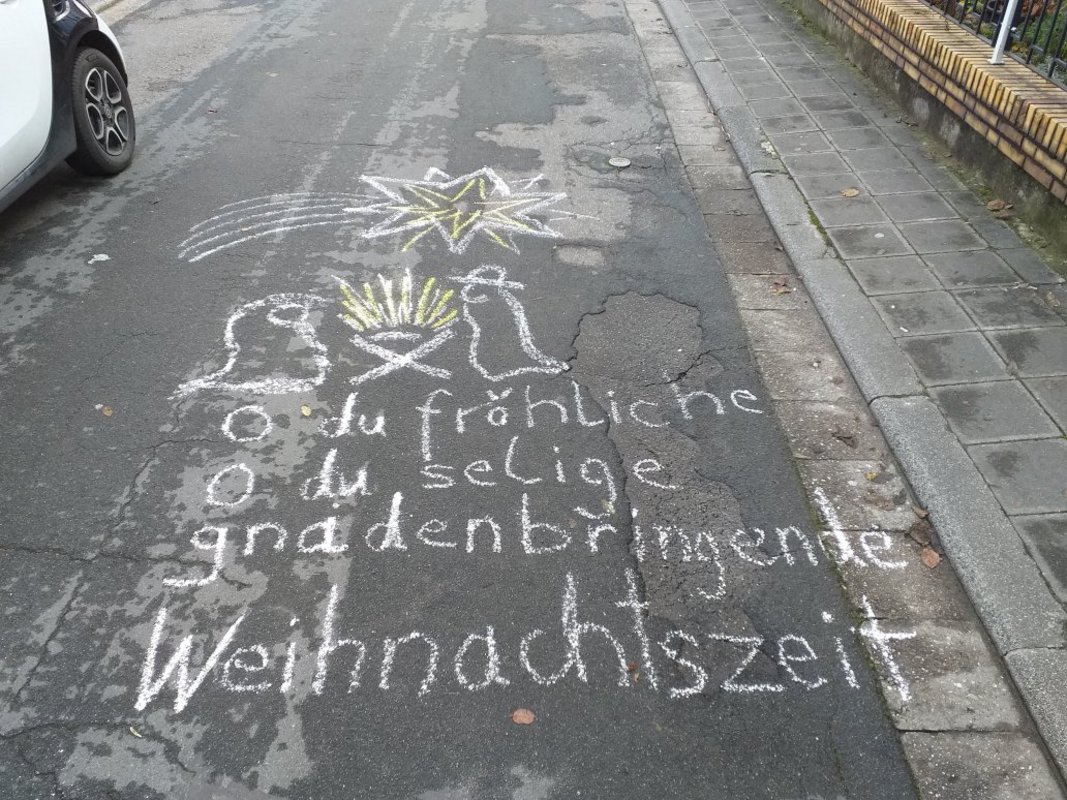 O du fröhliche
O du selige
gnadenbringende
Weihnachtszeit